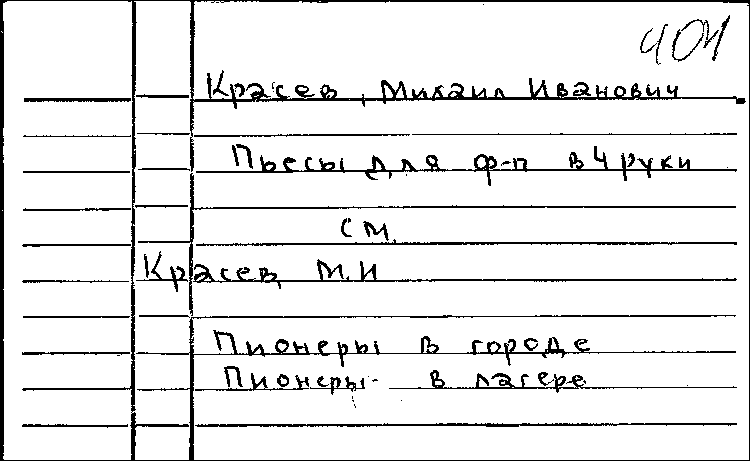 404
Красев, Михаил Иванович
Пьесы для ф-п в 4 руки
см.
Красев, М.И
Пионеры в городе
Пионеры в лагере